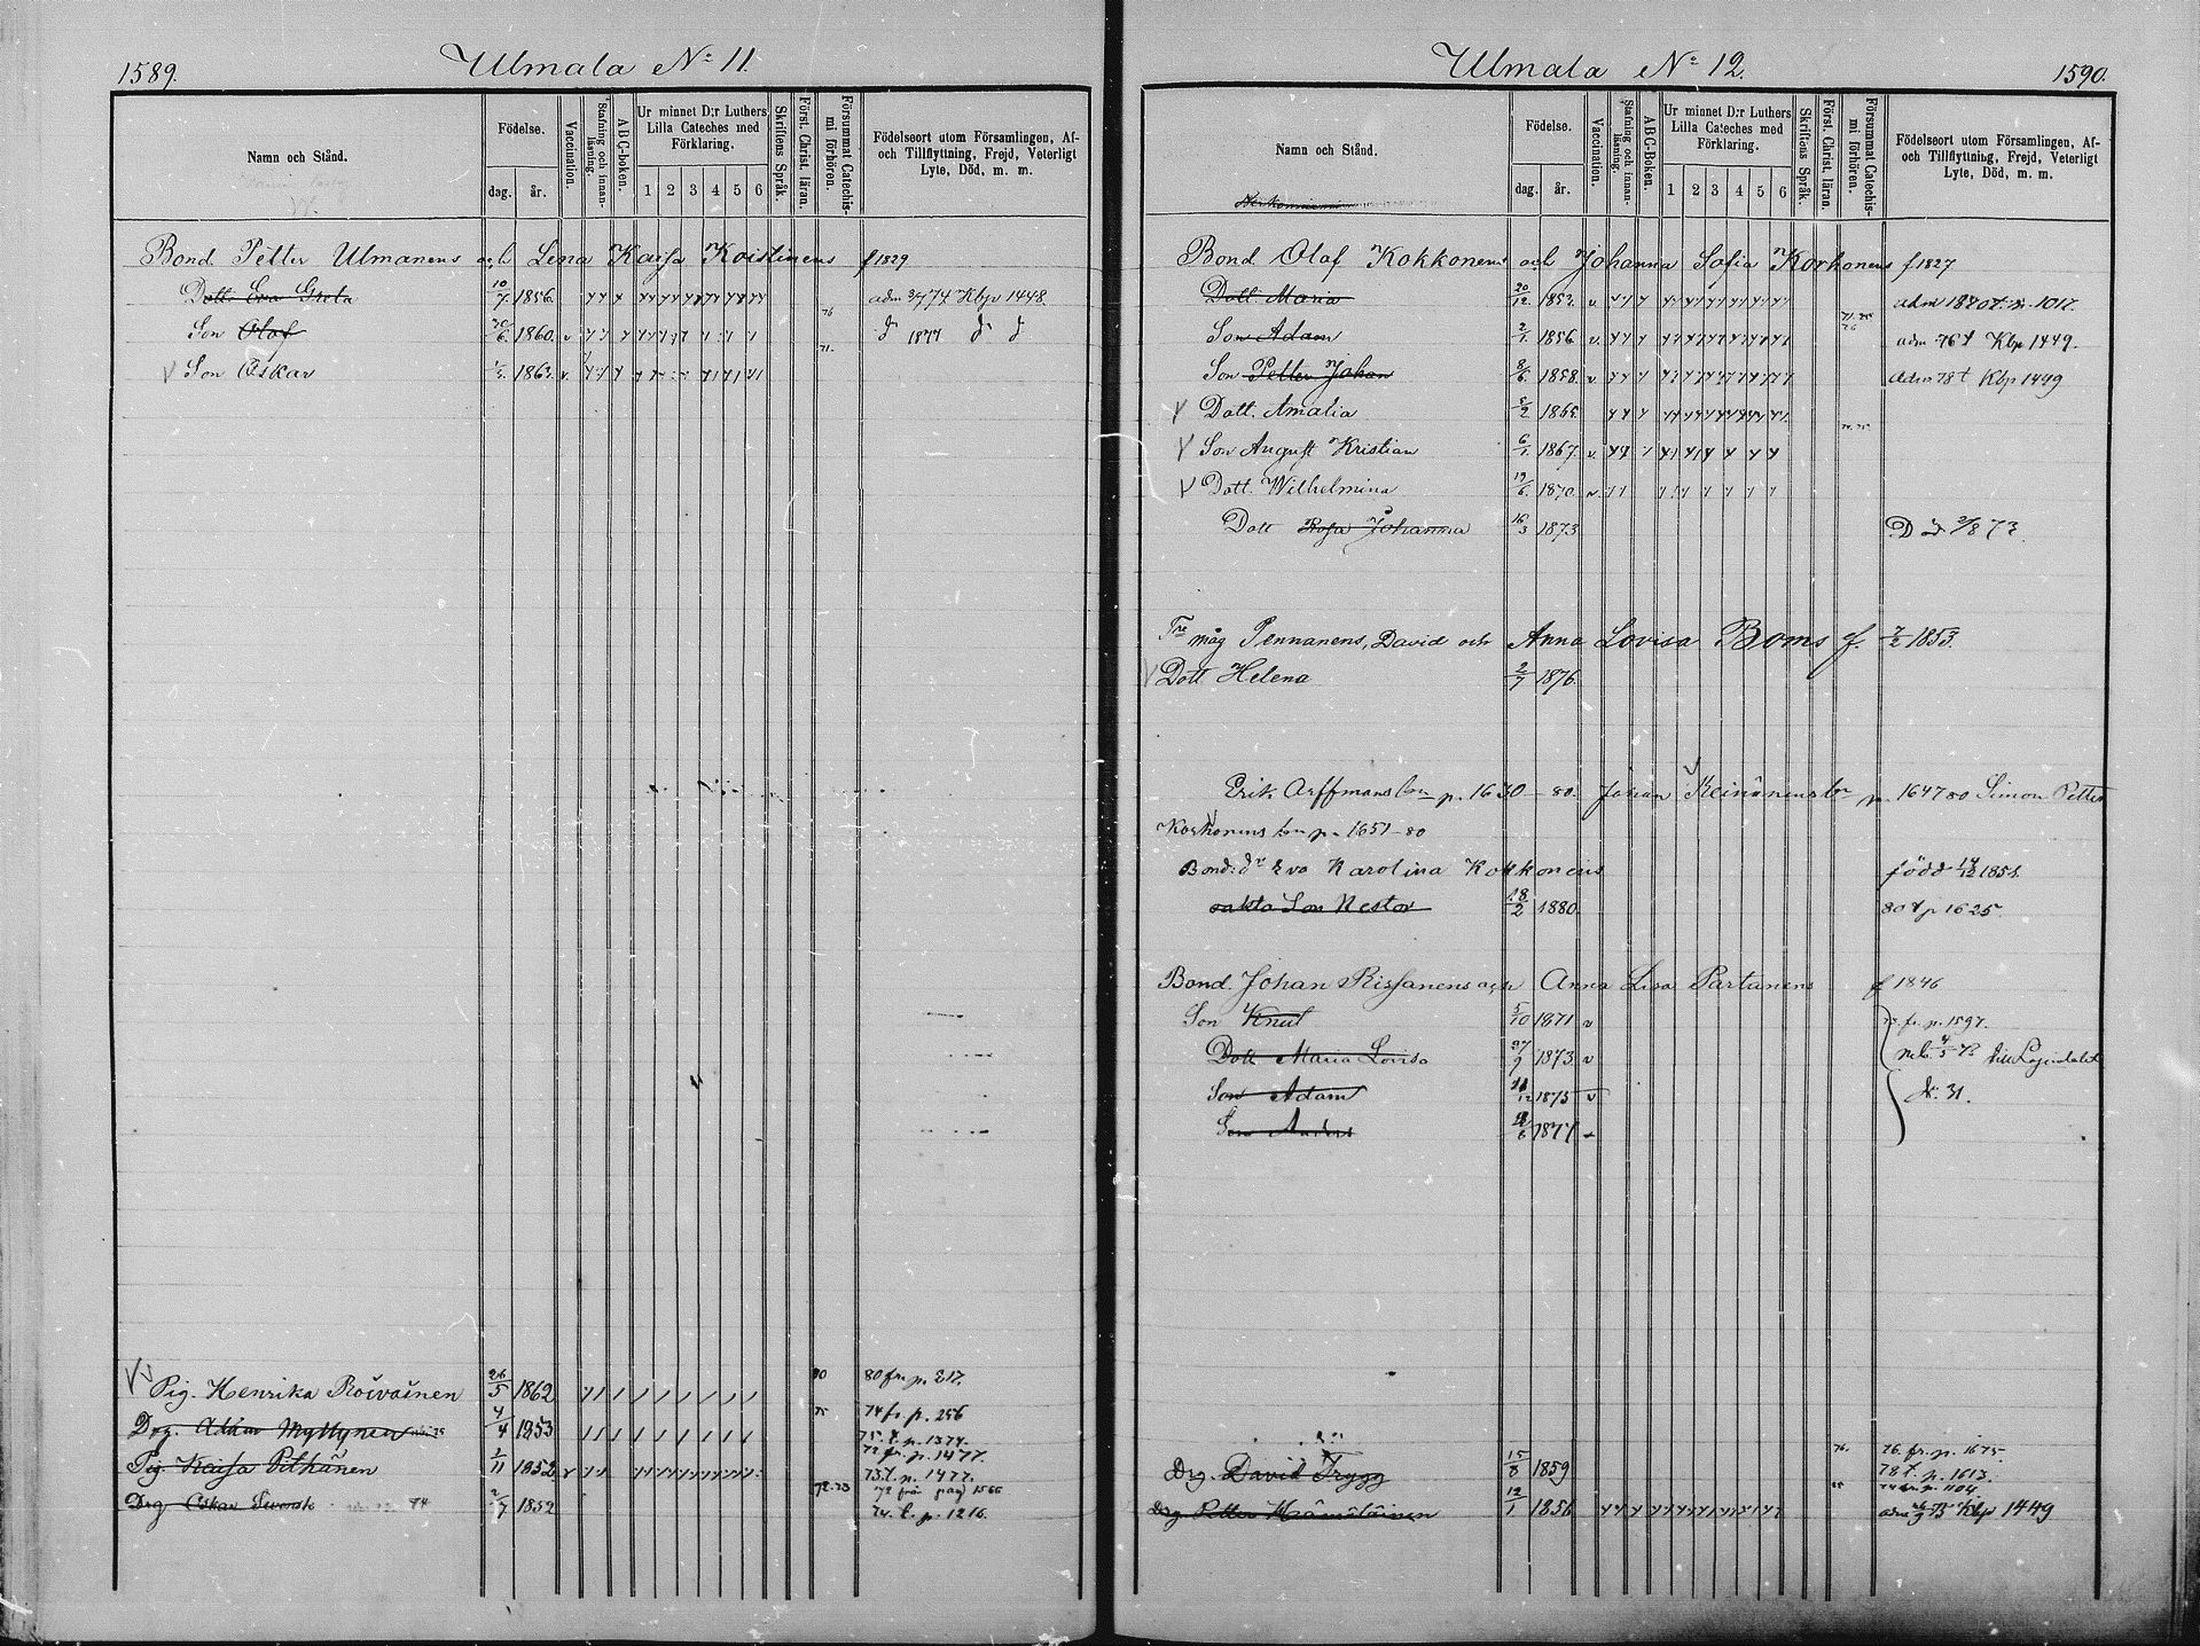 1589.
Ulmala No 11.
Namn och Stånd.
Födelse.
dag. år.
Vaccination.
Stafning och innanläsning.
ABC-boken.
Ur minnet D:r Luthers Lilla Cateches med Förklaring.
1 2 3 4 5 6
Skriftens Språk.
Först. Christ. läran.
Försummat Catechismi förhören.
Födelseort utom Församlingen, Af- och Tillflyttning, Frejd, Veterligt Lyte, Död, m. m.
Bond. Petter Ulmanens och Lena Kaisa Koistinens f 1829
Dott. Eva Greta 10/7. 1856. 74 Kbp 1448
Son Olaf 1860. v 76 1877
Son Oskar 1863. v. 71.
Pig. Henrika Roivainen 26/5 1862 80 80 fr. p. 217.
Drg. Adam Myllynen 4/4 1853 75 74 fr. p. 256
75. t. p. 1374.
Pig. Kaisa Pitkänen 2/11 1852 v 72 fr. p. 1477.
73. t. p. 1477.
Drg. Oskar 74 2/7 1852 72.73 72 från pag 1566
74. t. p. 1216.
Ulmala No 12.
1590.
Namn och Stånd.
Födelse.
dag. år.
Vaccination.
Stafning och innanläsning.
ABC-Boken.
Ur minnet D:r Luthers Lilla Cateches med Förklaring.
1 2 3 4 5 6
Skriftens Språk.
Först. Christ. läran.
Försummat Catechismi förhören.
Födelseort utom Församlingen, Af- och Tillflyttning, Frejd, Veterligt Lyte, Död, m. m.
Bond Olaf Kokkonens och Johanna Sofia Korhonens f 1827
Dott Maria 20/12. 1853. v. adm 1870 t. p. 1017.
Son Adam 2/1. 1856 v. adm 76 t Kbp 1449.
Son Petter Johan 8/6. 1858. v adm 78 t Kbp 1449
Dott. Amalia 1865.
Son August Kristian 6/1. 1867. v.
Dott. Wilhelmina 19/6. 1870 v.
Dott Rosa Johanna 16/3 1873 Död 2/8 73.
Tre måg Pennanens, David och Anna Lovisa Boms f. 7/2 1853.
Dott Helena 2/7 1876.
Erik Arffmans p. 1630 – 80. Johan Keinänens p. 1647 80 Simon Petter
Korhonens p. 1651–80
Bond: dr Eva Karolina Kokkonens född 14/12 1851.
oäkta Son Nestor 18/2 1880. 80 t p 1625
Bond. Johan Rissanens och Anna Lisa Partanens f 1846
Son Knut 5/10 1871 v 73. fr. p. 1597.
Dott Maria Lovisa 27/9 1873 v till
Son Adam 12 1875 v No 31.
Son Anders 6 1877
Drg. David Trygg 15/8 1859 76. 76. fr. p. 1675
78 t. p. 1613.
Drg. Petter Hämäläinen 12/1 1856 74 fr. p. 1104
adm 75 Kbp 1449